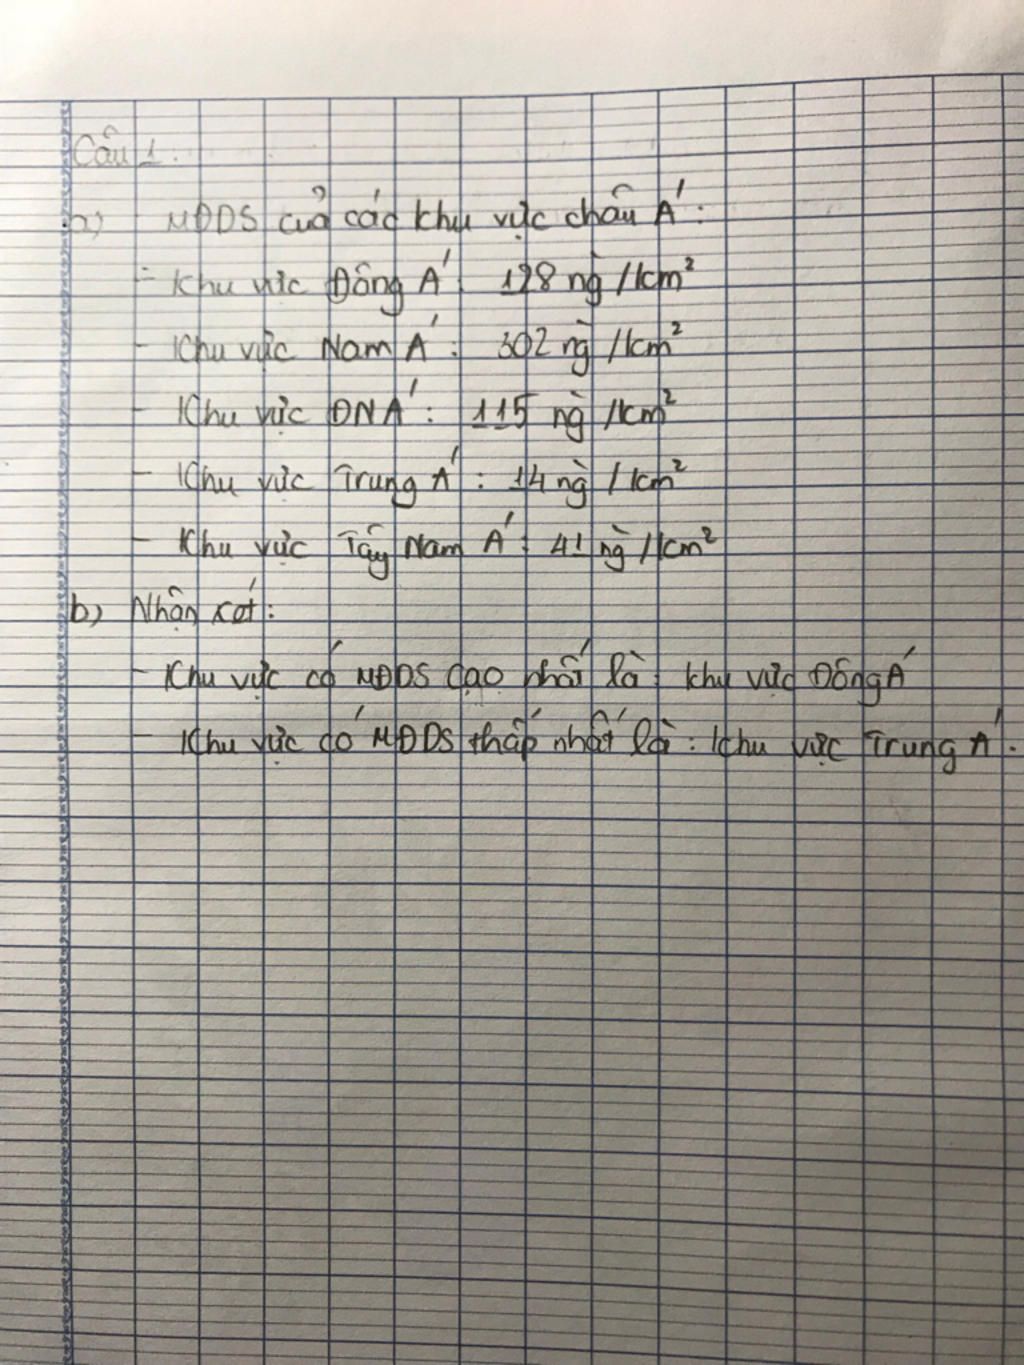 Câu 1:
a) - MĐDS cuả các khu vực châu Á:
- Khu vực Đông Á: 128 ng /km²
- Khu vực Nam Á: 302 ng /km²
- Khu vực ĐNÁ: 115 ng /km²
- Khu vực Trung Á: 14 ng /km²
- Khu vực Tây Nam Á: 41 ng /km²
b) Nhận xét:
- Khu vực có MĐDS cao nhất là: khu vực Đông Á
- Khu vực có MĐDS thấp nhất là: khu vực Trung Á.